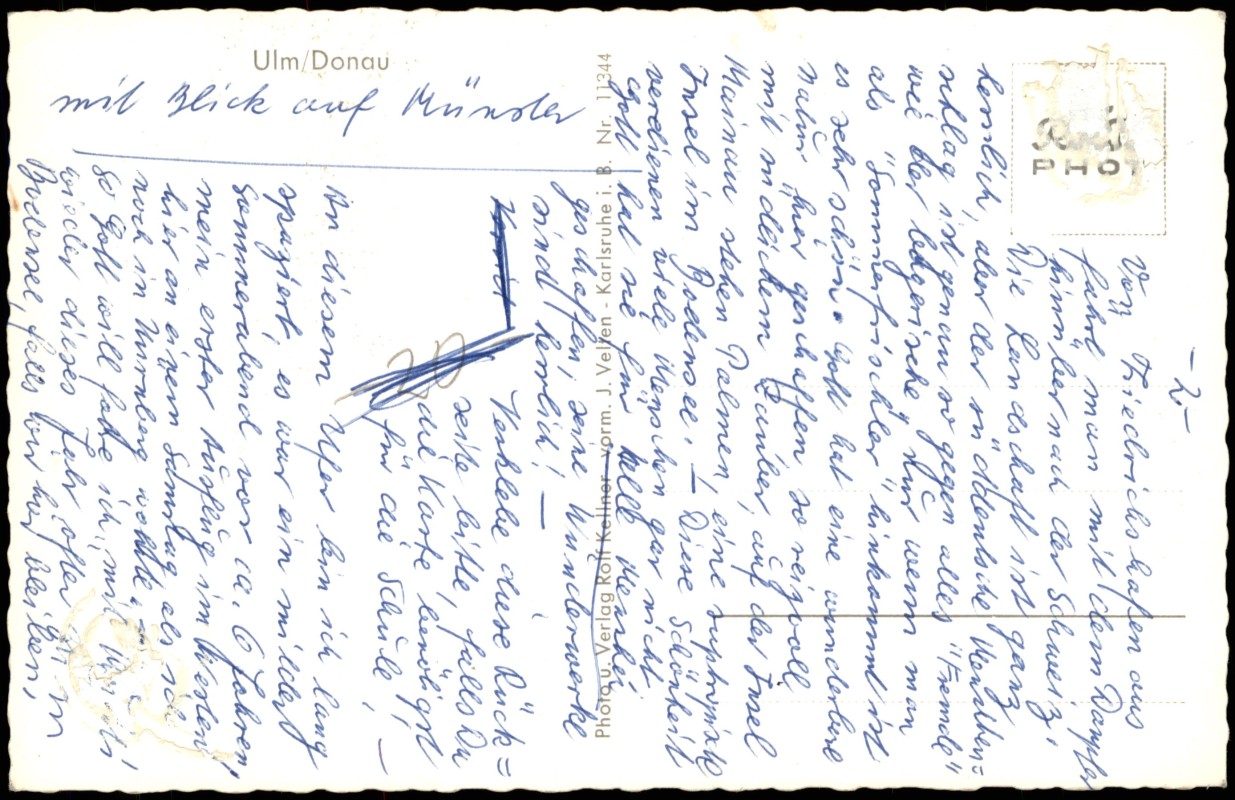 Ulm/Donau
mit Blick auf Münster
- 2.-
Von Friedrichshafen aus
fährt man mit dem Dampfer
hinüber nach der Schweiz!
Die Landschaft ist ganz
herrlich, aber der süddeutsche Menschen=
schlag ist genau so gegen alles "Fremde"
wie der Nur wenn man
als "Sommerfrischler" hinkommt ist
es sehr schön. Gott hat eine wunderbare
Natur hier geschaffen so reizvoll
mit südlichem Zauber, auf der Insel
Mainau stehen Palmen, eine subtropische
Insel im Bodensee. — Diese Schönheit
verdienen viele Menschen gar nicht.
Gott hat sie für
geschaffen, seine Wunderwerke
sind herrlich! —
Verklebe diese Rück=
seite bitte, falls Du
die Karte benötigst
für die Schule! —
20
An diesem Ufer bin ich lang
spaziert es war ein milder
Sommerabend vor ca. 6 Jahren
mein erster Ausflug im Westen
hier an einem Samstag als ich
noch in Nürnberg wohnte.
So Gott will fahre ich, mit
wieder dieses Jahr öfter
Bodensee, falls wir hier bleiben,
Photo u. Verlag Rolf Kellner - vorm. J. Velten - Karlsruhe i. B. Nr. 11344
PHOT